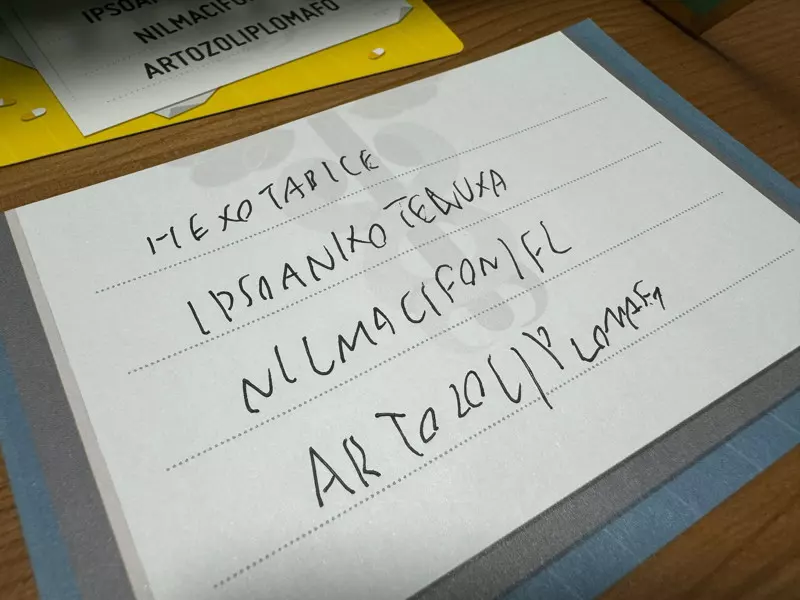 IPSOA
NILMACIFO
ARTOZOLIPLOMAFO
HEXOTABICE
IPSOANIXOTEDUXA
NILMACIFONIFL
ARTOZOLIPLOMAFO